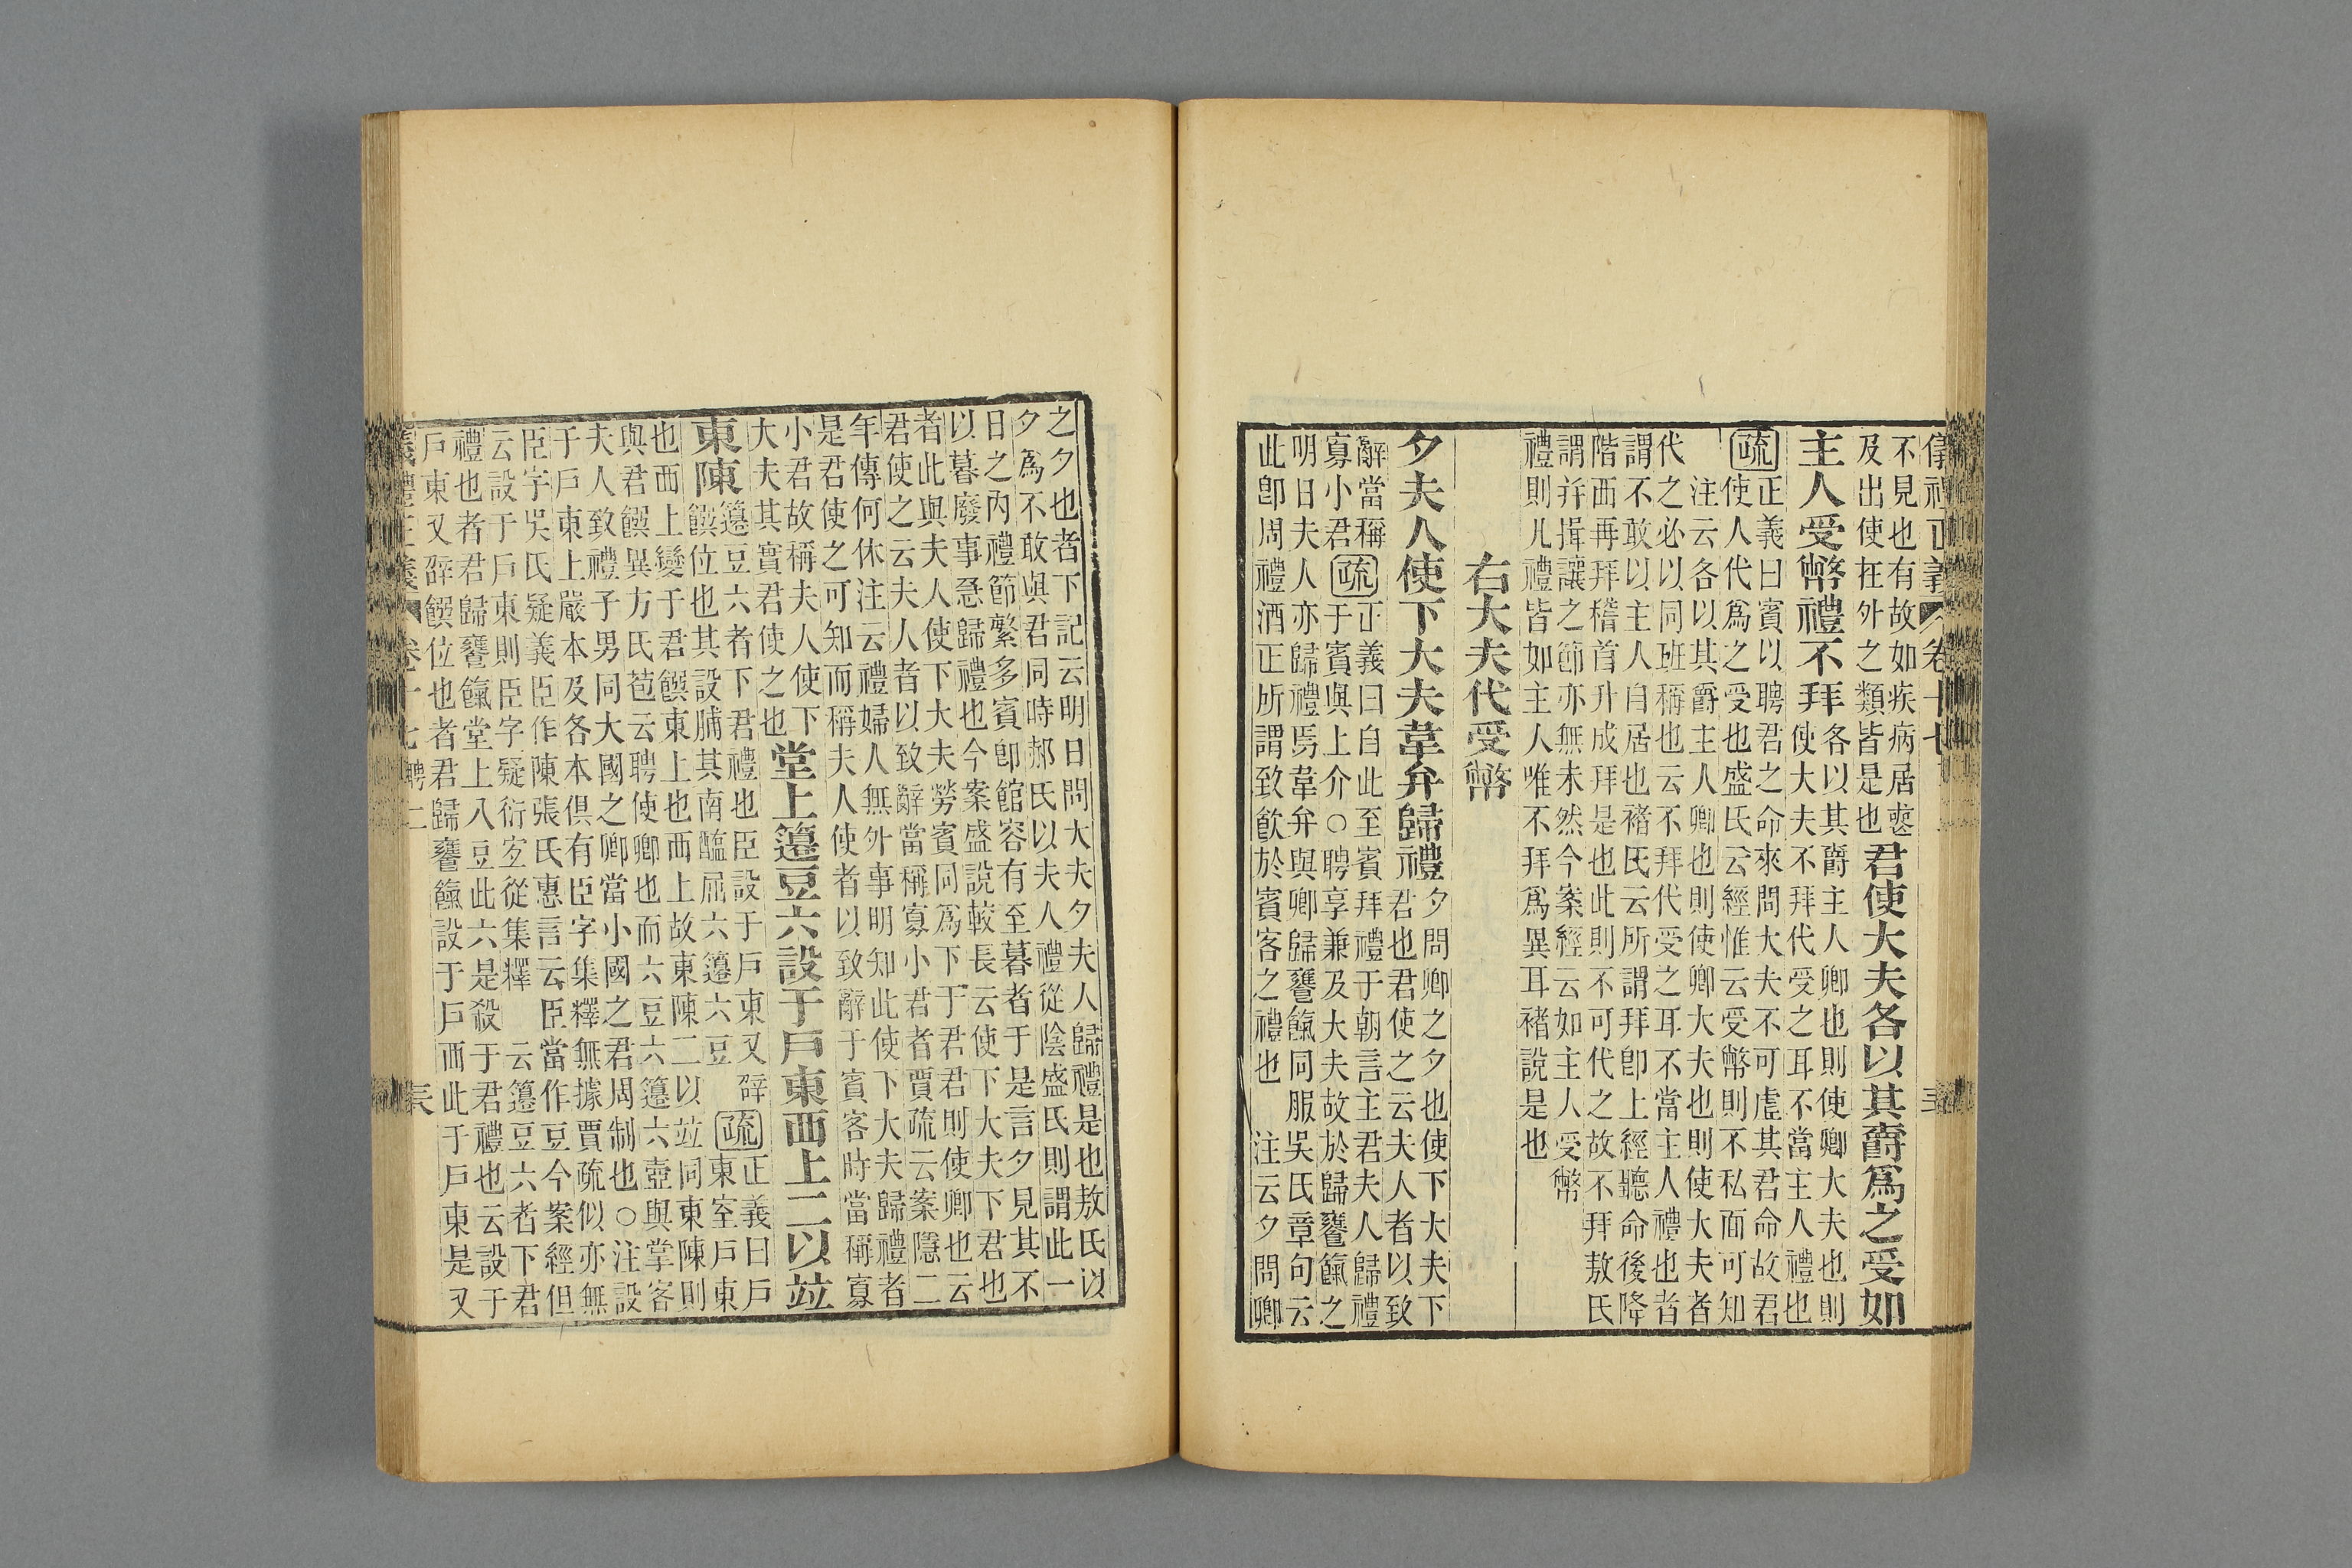 不見也有故如疾病居喪
及出使在外之類皆是也
君使大夫各以其爵爲之受如
主人受幣禮不拜
各以其爵主人卿也則使卿大夫也則
使大夫不拜代受之耳不當主人禮也
疏
正義曰賓以聘君之命來問大夫不可虛其君命故君
使人代爲之受也盛氏云經惟云受幣則不私面可知
注云各以其爵主人卿也則使卿大夫也則使大夫者
代之必以同班稱也云不拜代受之耳不當主人禮也者
謂不敢以主人自居也褚氏云所謂拜卽上經聽命後降
階西再拜稽首升成拜是也此則不可代之故不拜敖氏
謂并揖讓之節亦無未然今案經云如主人受幣
禮則凡禮皆如主人唯不拜爲異耳褚說是也
右大夫代受幣
夕夫人使下大夫韋弁歸禮
夕問卿之夕也使下大夫下
君也君使之云夫人者以致
辭當稱
寡小君
疏
正義曰自此至賓拜禮于朝言主君夫人歸禮
于賓與上介○聘享兼及大夫故於歸饔餼之
明日夫人亦歸禮焉韋弁與卿歸饔餼同服吳氏章句云
此卽周禮酒正所謂致飲於賓客之禮也 注云夕問卿
之夕也者下記云明日問大夫夕夫人歸禮是也敖氏以
夕爲不敢與君同時郝氏以夫人禮從陰盛氏則謂此一
日之內禮節繁多賓卽館容有至暮者于是言夕見其不
以暮廢事急歸禮也今案盛說較長云使下大夫下君也
者此與夫人使下大夫勞賓同爲下于君君則使卿也云
君使之云夫人者以致辭當稱寡小君者賈疏云案隱二
年傳何休注云禮婦人無外事明知此使下大夫歸禮者
是君使之可知而稱夫人使者以致辭于賓客時當稱寡
小君故稱夫人使下
大夫其實君使之也
堂上籩豆六設于戶東西上二以竝
東陳
籩豆六者下君禮也臣設于戶東又辟
饌位也其設脯其南醢屈六籩六豆
疏
正義曰戶
東室戶東
也西上變于君饌東上也西上故東陳二以竝同東陳則
與君饌異方氏苞云聘使卿也而六豆六籩六壺與掌客
夫人致禮子男同大國之卿當小國之君周制也○注設
于戶東上嚴本及各本俱有臣字集釋無據賈疏似亦無
臣字吳氏疑義臣作陳張氏惠言云臣當作豆今案經但
云設于戶東則臣字疑衍宐從集釋 云籩豆六者下君
禮也者君歸饔餼堂上八豆此六是殺于君禮也云設于
戶東又辟饌位也者君歸饔餼設于戶西此于戶東是又